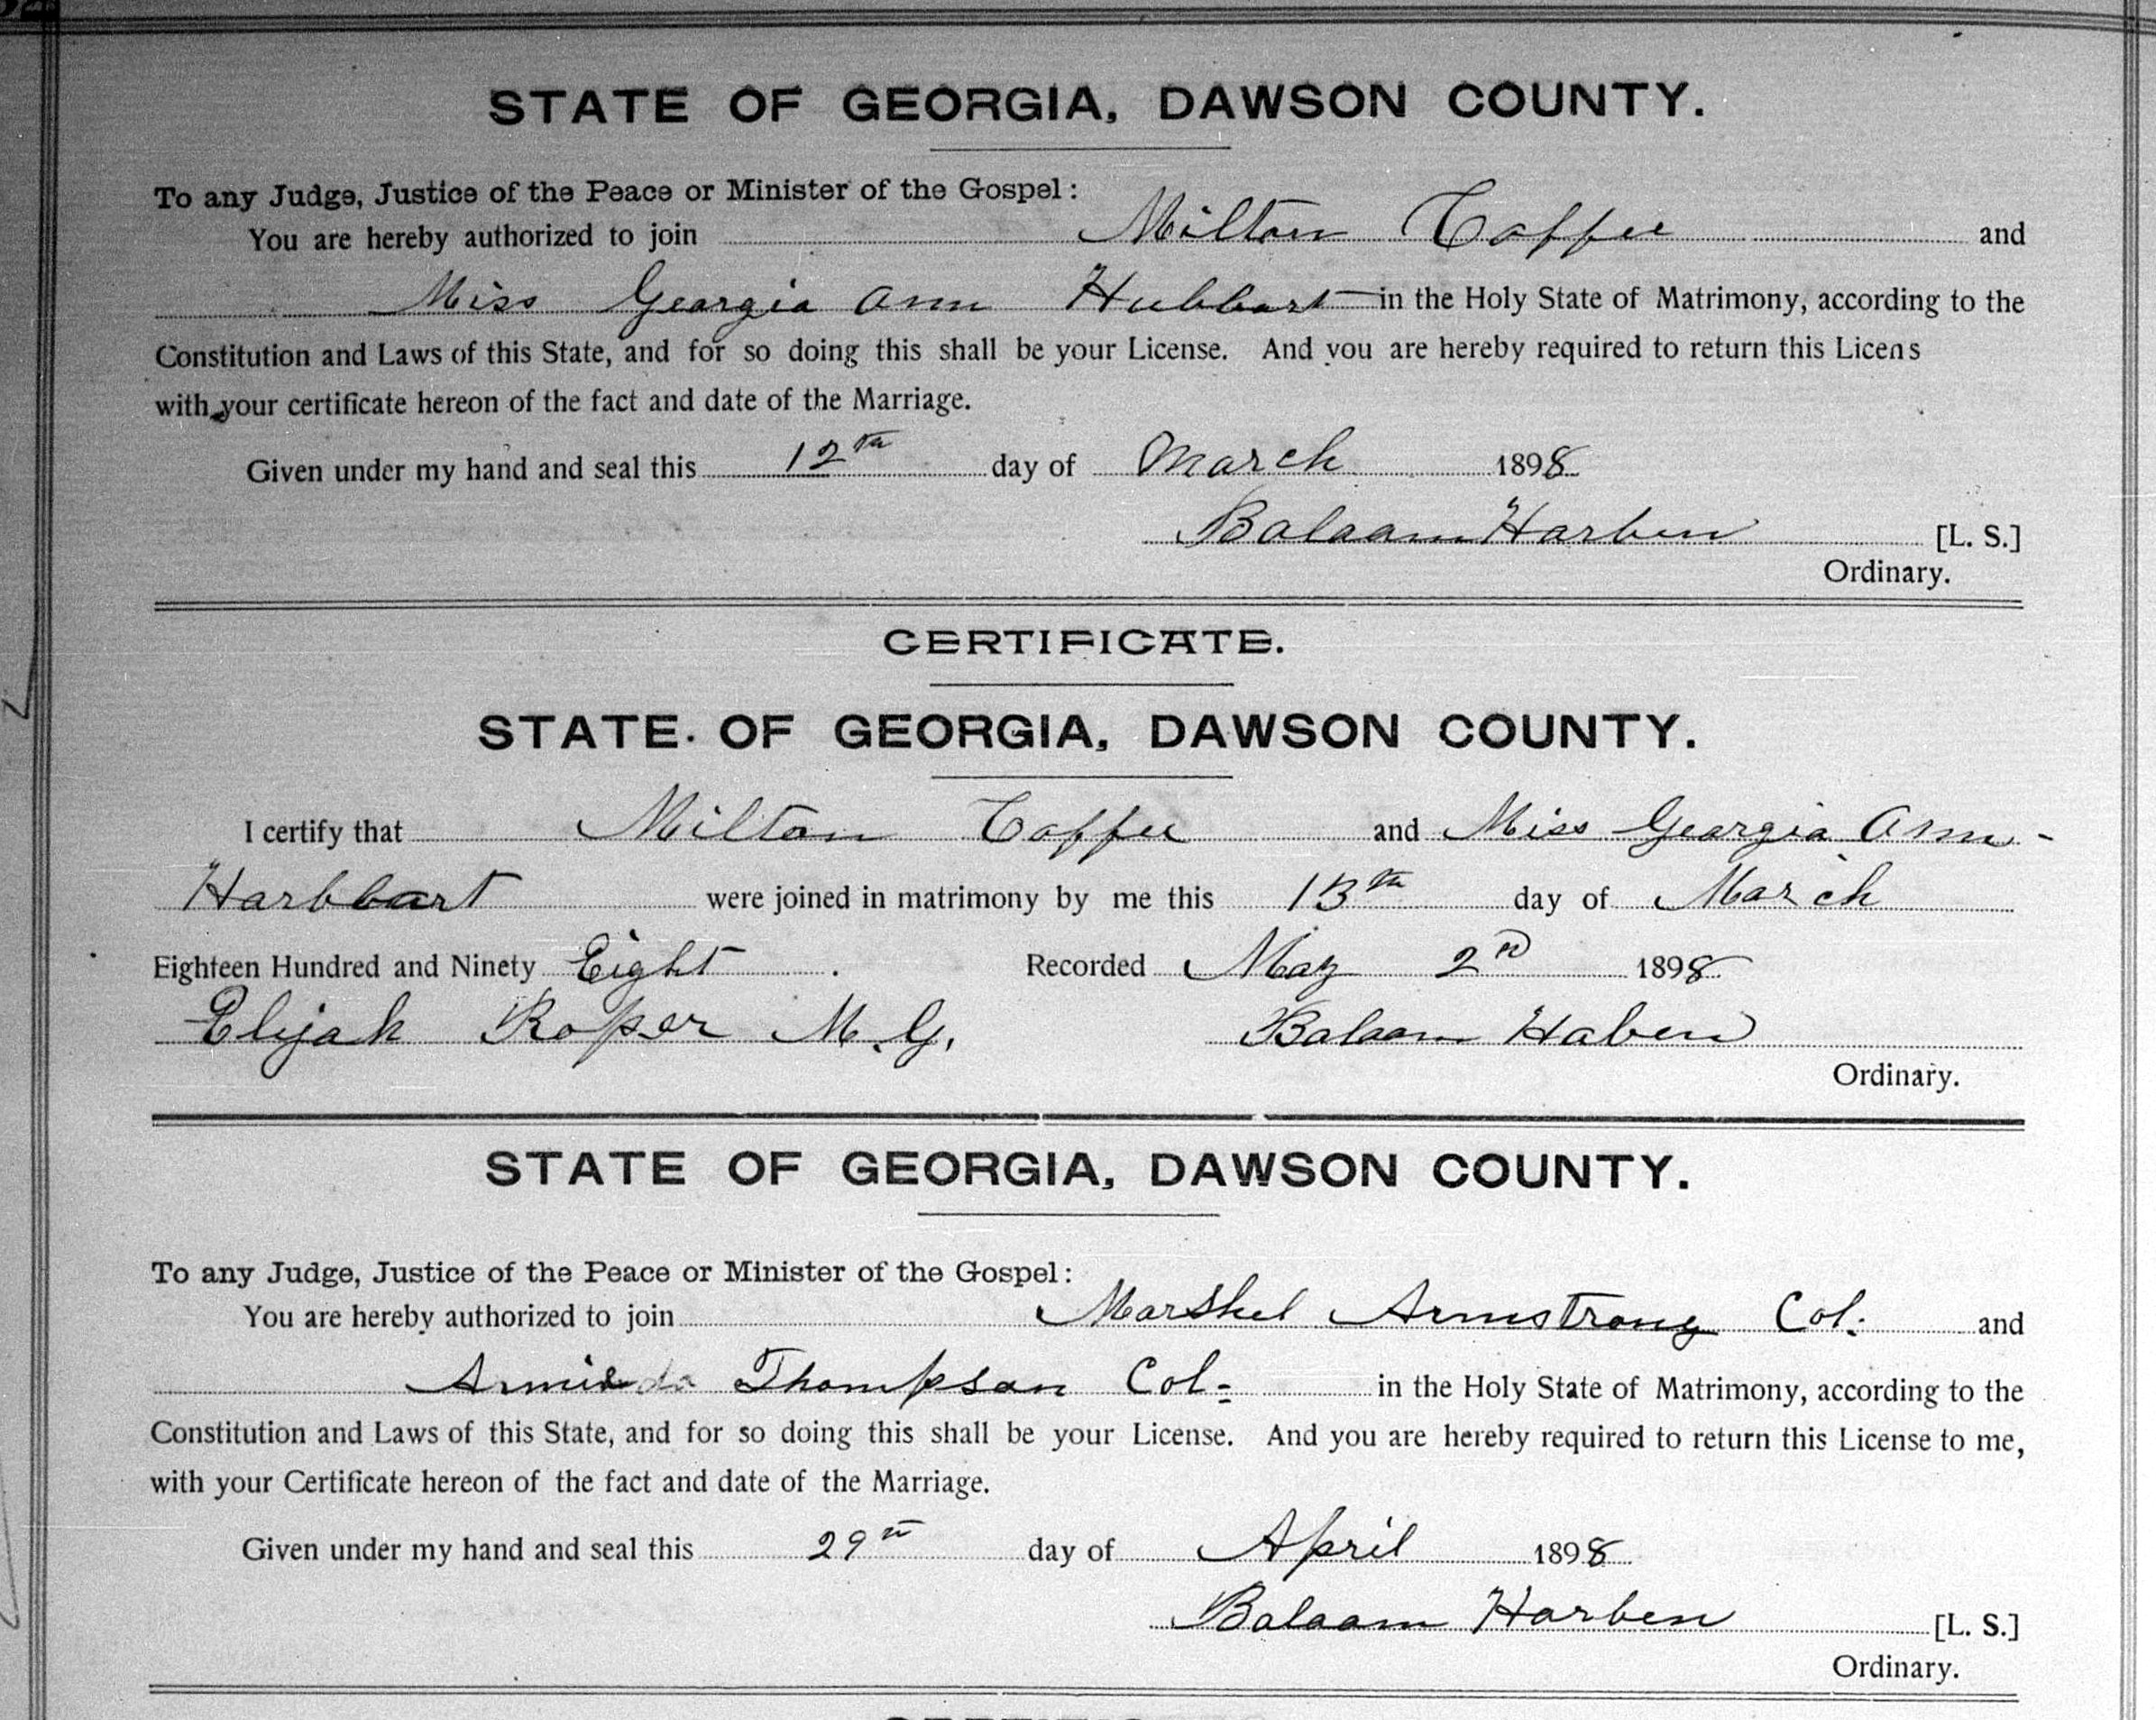 STATE OF GEORGIA, DAWSON COUNTY.
To any Judge, Justice of the Peace or Minister of the Gospel:
You are hereby authorized to join Milton Coffee and
Miss Georgia Ann Hubbart in the Holy State of Matrimony, according to the
Constitution and Laws of this State, and for so doing this shall be your License. And you are hereby required to return this Licens
with your certificate hereon of the fact and date of the Marriage.
Given under my hand and seal this 12th day of March 1898
Balaam Harben [L. S.]
Ordinary.
CERTIFICATE.
STATE OF GEORGIA, DAWSON COUNTY.
I certify that Milton Coffee and Miss Georgia Ann -
Harbbart were joined in matrimony by me this 13th day of March
Eighteen Hundred and Ninety Eight. Recorded May 2nd 1898
Elijah Roper M.G. Balaam Haben
Ordinary.
STATE OF GEORGIA, DAWSON COUNTY.
To any Judge, Justice of the Peace or Minister of the Gospel:
You are hereby authorized to join Marshel Armstrong Col: and
Thompson Col- in the Holy State of Matrimony, according to the
Constitution and Laws of this State, and for so doing this shall be your License. And you are hereby required to return this License to me,
with your Certificate hereon of the fact and date of the Marriage.
Given under my hand and seal this 29th day of April 1898
Balaam Harben [L. S.]
Ordinary.